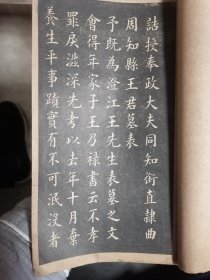 誥授奉政大夫同知銜直隸曲
周知縣王君墓表
予既為澄江王先生表墓之文
會得年家子王乃祿書云不孝
罪戾滋深先考以去年十月棄
養生平事蹟實有不可泯沒者